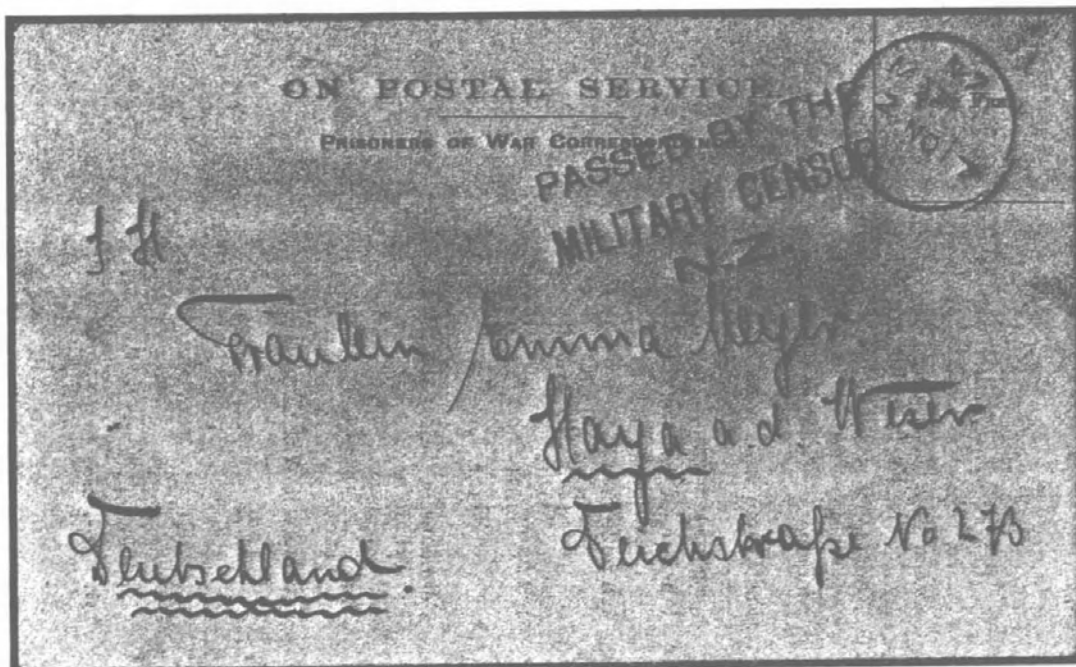 ON POSTAL SERVICE.
PRISONERS OF WAR CORRESPONDENCE.
PASSED BY THE
MILITARY CENSOR
N.Z.
Fräulein Emma Meyer
Haya a.d. Weser
Deichstraße No 273
Deutschland.